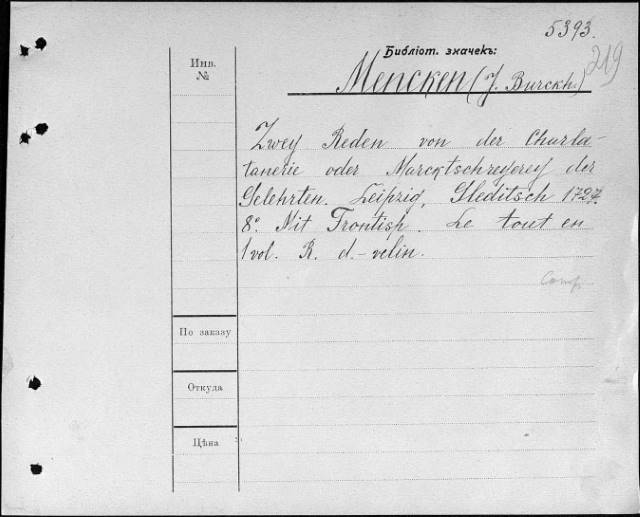 5393.
219
Библіот. значекъ:
Mencken (J. Burckh.)
Инв.
№
Zwey Reden von der Charla-
tanerie oder Marcktschreyerey der
Gelehrten. Leipzig, Gleditsch 1727.
8º. Mit Frontisp. Le tout en
1 vol. R. d.-velin.
Comp.
По заказу
Откуда
Цѣна